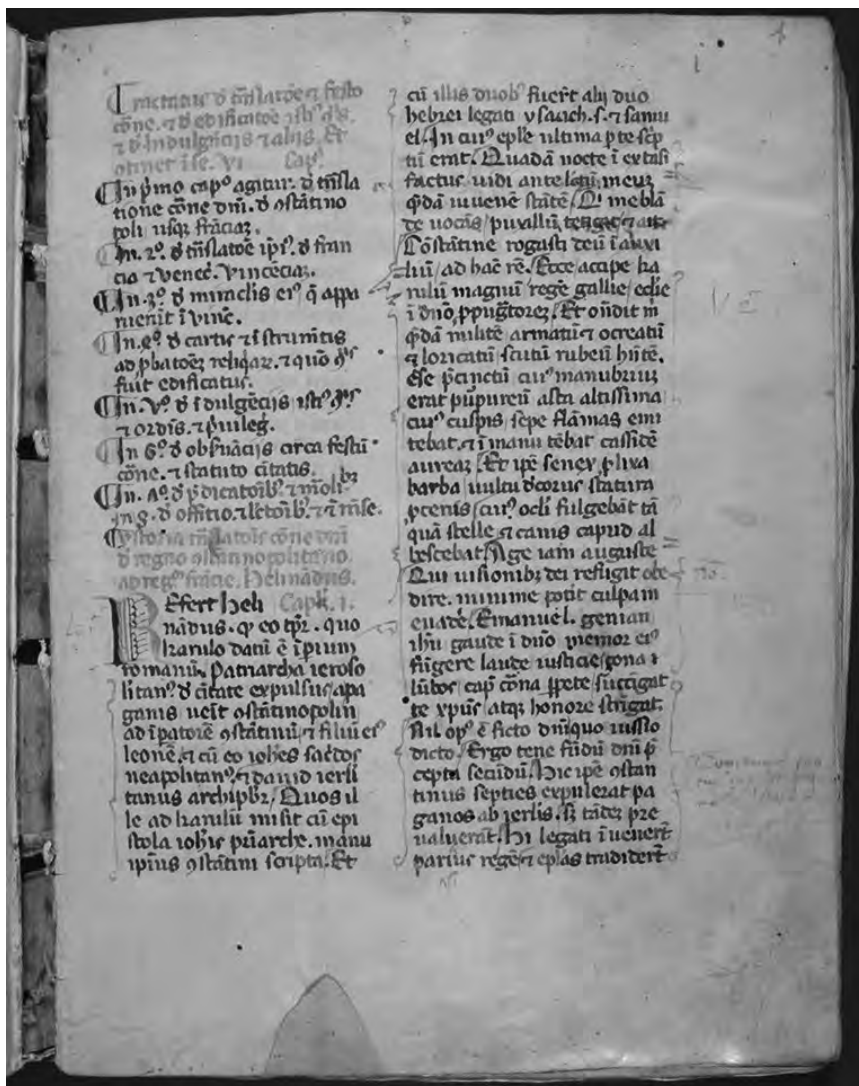 Tractatus d' trāslatōe ⁊ festo
cōne. ⁊ d' edificatōe isti⁹
⁊ d' indulgēcijs ⁊ alijs. Et
ɔtinet ī se. VI Cap.
In pͥmo capᵒ agitur. d' trāsla
tione cōne dn̄i. d' ɔstātino
poli usqꝫ frāciaꝫ.
In. 2ᵒ. d' trāslatōe ip̄i⁹. d' fran
cia ⁊ venec̄. Vincēciaꝫ.
In. 3ᵒ. d' miraclis ei⁹ q̄ appa
ruerūt ī vinc̄.
In. 4ᵒ. d' cartis ⁊ īstrum̄tis
ad ꝓbatōeꝫ reliqiaꝝ. ⁊ quō
fuit edificatus.
In. Vᵒ. d' īdulgēcijs isti⁹
⁊ ordīs. ⁊ pͥuileg̃.
In 6ᵒ. d' obsūacijs circa festū
cōne. ⁊ statuto citatis.
In. d' p̄dicatoīb⁹. ⁊ m̄olibꝫ
In 8. d' offitio. ⁊ l̄ctoīb⁹. ⁊ ī m̄se.
Ystoria trāslatōis cōne dn̄i
d' regno ɔstātinopolitano
ad reg⁹ frācie. helinādus.
Refert heli Capl̄. 1.
nādus. qꝫ eo tp̄r. quo
karulo datū ē īp̄ium
romanū. Patriarcha ieroso
litan⁹ d' citate expulsus a pa
ganis ueīt ɔstātinopolim
ad īp̄atorē ɔstātinū. ⁊ filiū ei⁹
leonē. ⁊ cū eo ioh̄es sac̄dos
neapolitan⁹. ⁊ dauid ierl̄i
tanus archip̄br. Quos il
le ad karulū misit cū epi
stola ioh̄is pͥarche. manu
ip̄ius ɔstātini scripta. Et
cū illis duob⁹ fuer̄t alij duo
hebrei legati ysaach. s. ⁊ samu
el. In cui⁹ ep̄le ultima p̄te scͥp
tū erat. Quadā nocte ī extasi
factus uidi ante lectū meuꝫ
q̄dā iuuenē stātē. Qͥ me blā
de uocās, paullū tetigit ⁊ ait.
Cōstātine rogasti deū ī auxi
liū, ad hac̄ rē. Ecce accipe ka
rulū magnū regē gallie, eccl̄ie
ī dn̄o ꝓpugtorēꝫ. Et on̄dit m̄
q̄dā militē armatū ⁊ ocreatū
⁊ loricatū scutū rubeū hn̄tē.
Ese p̄cinctū cui⁹ manubriuꝫ
erat purpureū asta altissima
cui⁹ cuspis sepe flāmas emi
tebat. ⁊ ī manu tēbat cassidē
aureaꝫ. Et ip̄e senex ꝓlixa
barba uultu d'corus statura
ꝓcerus, cui⁹ ocl̄i fulgebāt tā
quā stelle ⁊ canis capud al
bescebat. Age iam auguste
Qui uisionibꝫ dei refugit obe
dire. minime pōtit culpam
euadē. Emanuel. geman
ih̄u gaude ī dn̄o memor ei⁹
fūgere laude iusticie, zona ⁊
lūbos, cap⁹ cōna ꝑpete, succīgat
te xp̄us atqꝫ honore strigat.
Nil op⁹ ē ficto dn̄iquo iusso
dicto. Ergo tene fūdū dn̄i p̄
cepta secūdū. Hic ip̄e ɔstan
tinus septies expulerat pa
ganos ab ierl̄is. sꝫ tādeꝫ pre
ualuerāt. Hi legati īuenert̄
parius regē ⁊ ep̄las tradidert̄